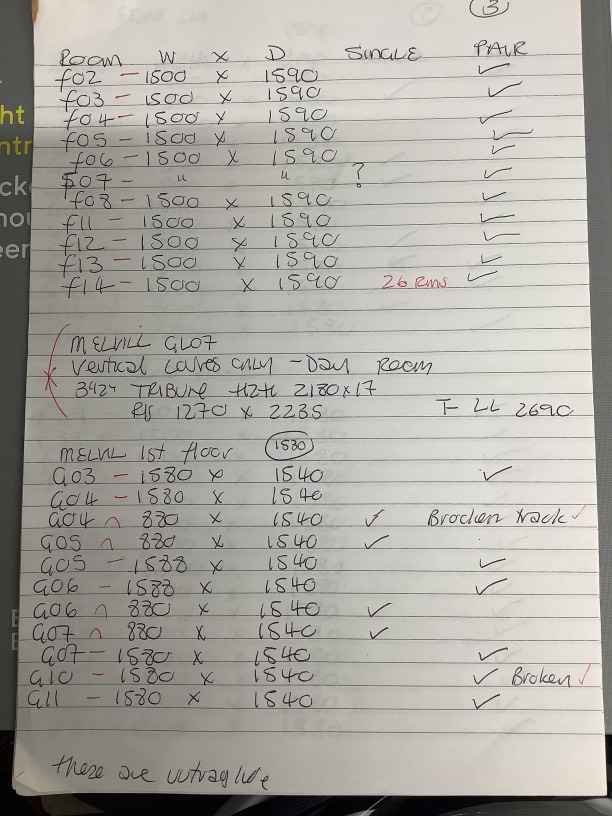 3
Room W x D SINGLE PAIR
f02 - 1500 x 1590 ✓
f03 - 1500 x 1590 ✓
f04 - 1500 x 1590 ✓
f05 - 1500 x 1590 ✓
f06 - 1500 x 1590 ✓
f07 - " " ? ✓
f08 - 1500 x 1590 ✓
f11 - 1500 x 1590 ✓
f12 - 1500 x 1590 ✓
f13 - 1500 x 1590 ✓
f14 - 1500 x 1590 26 Rms ✓
MELVILL GL07
Vertical Louvres only - Day Room
TRIBUNE 2180 x 17
1270 x 2235 F LL 2690
MELVIL 1st floor 1530
G03 - 1580 x 1540 ✓
G04 - 1580 x 1540
G04 ∩ 880 x 1540 ✓ Brocken track ✓
G05 ∩ 880 x 1540 ✓
G05 - 1588 x 1540 ✓
G06 - 1588 x 1540 ✓
G06 ∩ 880 x 1540 ✓
G07 ∩ 880 x 1540 ✓
G07 - 1580 x 1540 ✓
G10 - 1580 x 1540 ✓ Broken ✓
G11 - 1580 x 1540 ✓
these are